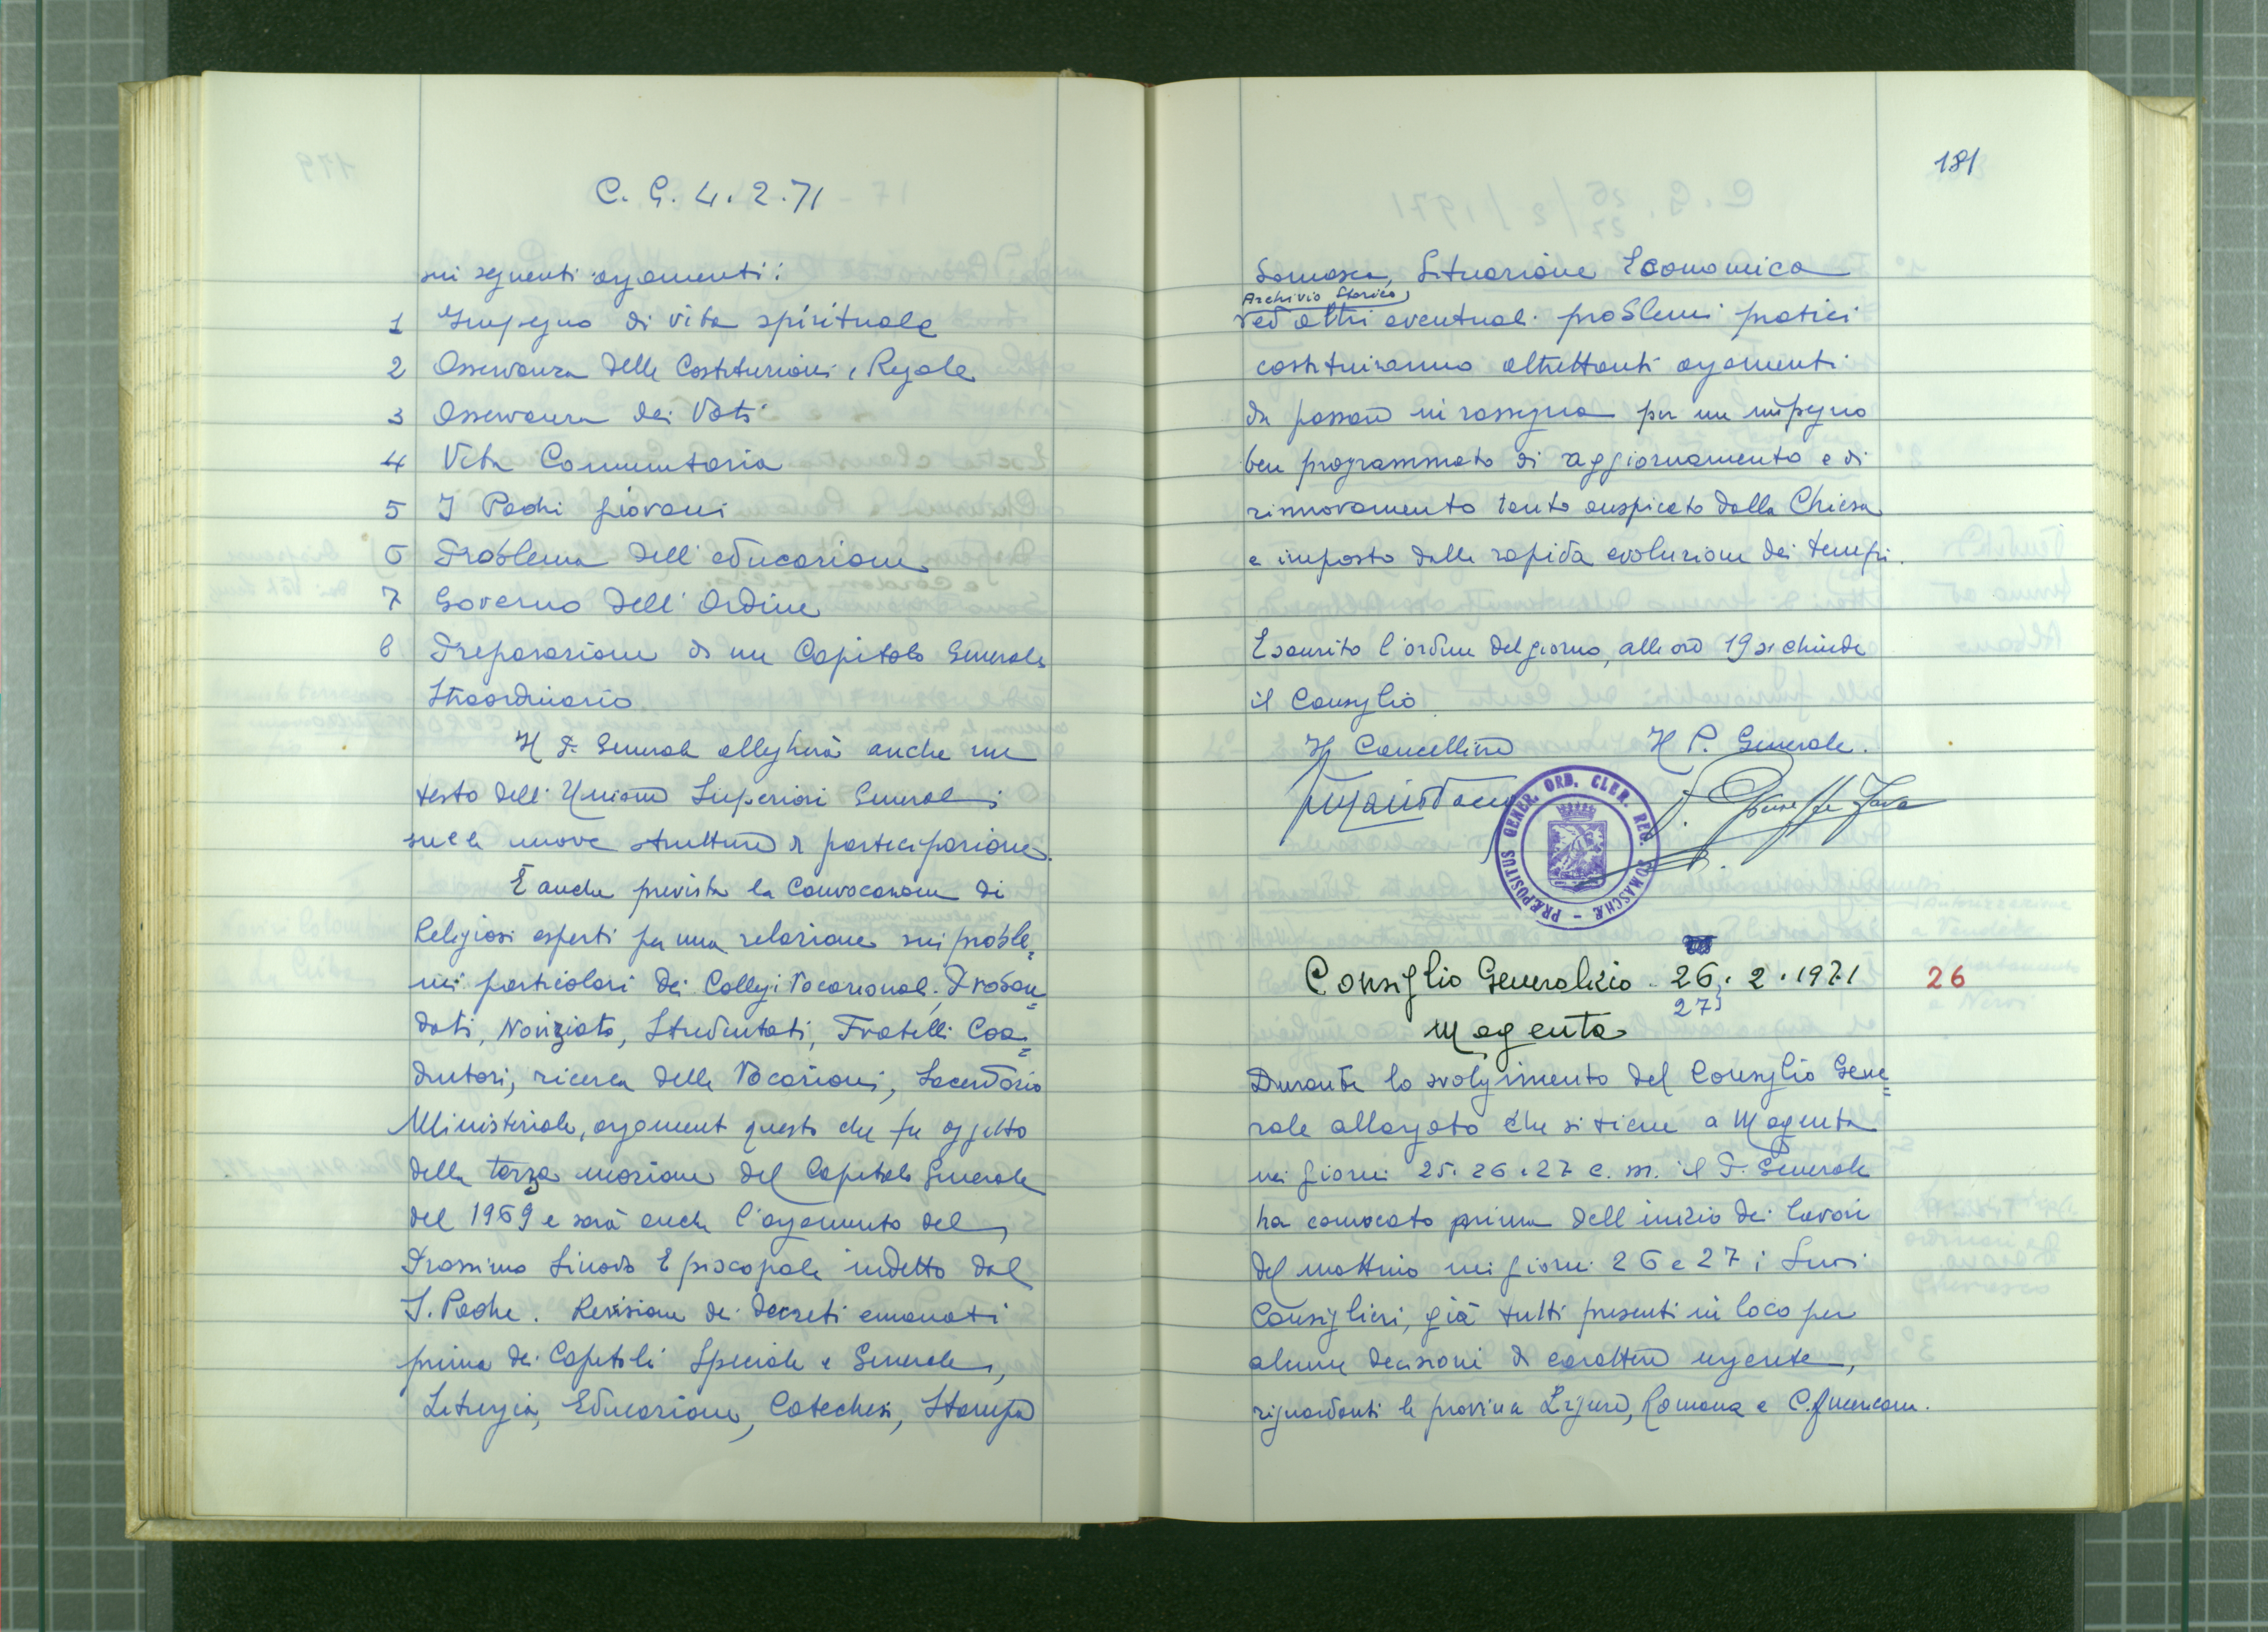 C. G. 4.2.71
sui seguenti argomenti:
1 Impegno di vita spirituale
2 Osservanza delle Costituzioni e Regole
3 Osservanza dei Voti
4 Vita Comunitaria
5 I Padri giovani
6 Problema dell'educazione
7 Governo dell'Ordine
8 Preparazione di un Capitolo Generale
Straordinario
Il P. Generale allegherà anche un
testo dell'Unione Superiori Generali
sulle nuove strutture di partecipazione.
È anche prevista la Convocazione di
Religiosi esperti per una relazione sui proble=
mi particolari dei Collegi Vocazionali, Proban=
dati, Noviziato, Studentati, Fratelli Coa=
diutori, ricerca delle Vocazioni, Sacerdozio
Ministeriale, argomento questo che fu oggetto
della terza mozione del Capitolo Generale
del 1969 e sarà anche l'argomento del
Prossimo Sinodo Episcopale indetto dal
S. Padre. Revisione dei decreti emanati
prima dei Capitoli Speciale e Generale,
Liturgia, Educazione, Catechesi, Stampa
181
Somasca, Situazione Economica
Archivio Storico,
ed altri eventuali problemi pratici
costituiranno altrettanti argomenti
da passare in rassegna per un impegno
ben programmato di aggiornamento e di
rinnovamento tanto auspicato dalla Chiesa
e imposto dalla rapida evoluzione dei tempi.
Esaurito l'ordine del giorno, alle ore 19 si chiude
il Consiglio
Il Cancelliere Il P. Generale.
P. Giuseppe Fava
PRÆPOSITUS GENER. ORD. CLER. REG. SOMASCHÆ
Consiglio Generalizio 26. 2. 1971 26
27
Magenta
Durante lo svolgimento del Consiglio Gene=
rale allargato che si tiene a Magenta
nei giorni 25. 26. 27 c. m. il P. Generale
ha convocato prima dell'inizio dei lavori
del mattino nei giorni 26 e 27 i Suoi
Consiglieri, già tutti presenti in loco per
alcune decisioni di carattere urgente,
riguardanti le provincia Ligure, Romana e C. Americam.